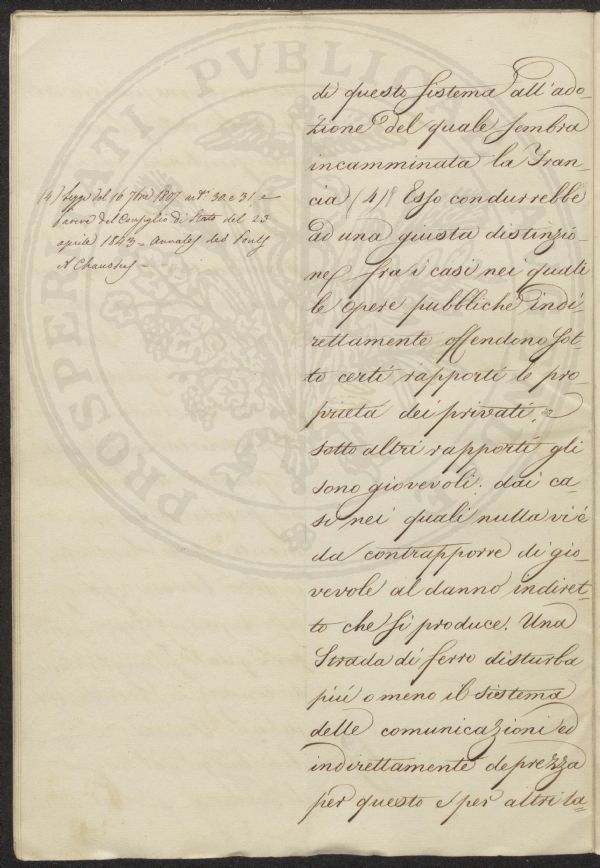 di questo sistema all'ado-
zione del quale sembra
incamminata la Fran-
cia (4) Esso condurrebbe
ad una giusta distinzio-
ne fra i casi nei quali
le opere pubbliche indi-
rettamente offendono sot-
to certi rapporti le pro-
prietà dei privati, e
sotto altri rapporti gli
sono giovevoli: dai ca-
si nei quali nulla vi è
da contrapporre di gio-
vevole al danno indiret-
to che si produce. Una
Strada di ferro disturba
più o meno il sistema
delle comunicazioni ed
indirettamente deprezza
per questo e per altri la-
(4) Legge del 16 7bre 1807 art. 30 e 31 e
parere del Consiglio di Stato del 23
aprile 1843 - Annales des Ponts
et Chaussées -
PROSPERITATI PUBLIC